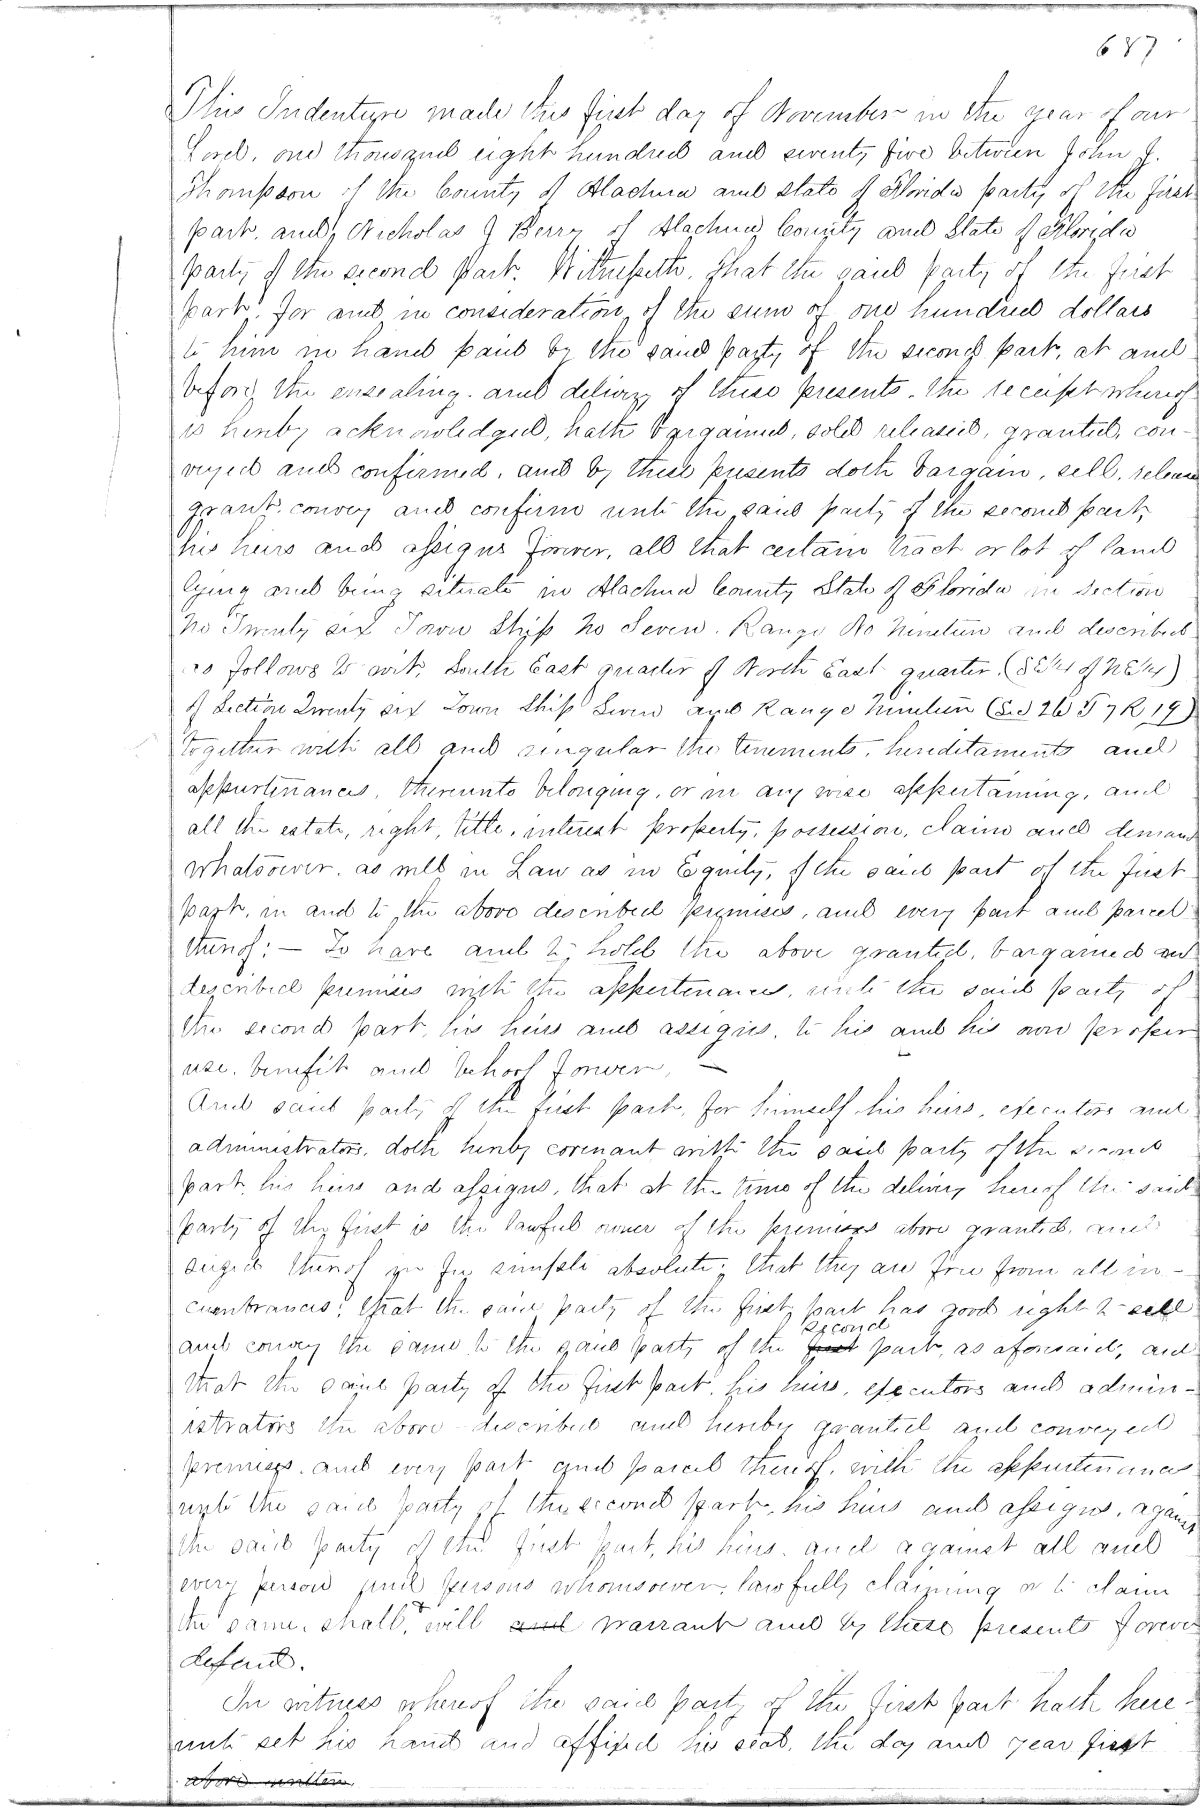 687
This Indenture made this first day of November in the year of our
Lord, one thousand eight hundred and seventy five between John J.
Thompson of the County of Alachua and state of Florida party of the first
part. and, Nicholas J Berry of Alachua County and State of Florida
party of the second part. Witnesseth. That the said party of the first
part, for and in consideration, of the sum of one hundred dollars
to him in hand paid by the said party of the second part, at and
before the ensealing. and delivery of these presents. the receipt whereof
is hereby acknowledged, hath bargained, sold released, granted, con-
veyed and confirmed, and by these presents doth bargain, sell, release
grant, convey and confirm unto the said party of the second part,
his heirs and assigns forever, all that certain tract or lot of land
lying and being situate in Alachua County State of Florida in section
No Twenty six Town Ship No Seven. Range No Nineteen and described
as follows to wit, South East quarter of North East quarter. (SE1/4 of NE1/4)
of Section Twenty six Town Ship Seven and Range Nineteen (S.J 26 T 7 R 19)
together with all and singular the tenements, hereditaments and
appurtenances, thereunto belonging, or in any wise appertaining, and
all the estate, right, title, interest property, possession, claim and demand
whatsoever. as well in Law as in Equity, of the said part of the first
part, in and to the above described premises, and every part and parcel
thereof: — To have and to hold the above granted, bargained and
described premises with the appertenances, unto the said party of
the second part, his heirs and assigns, to his and his own proper
use, benefit and behoof forever, —
And said party of the first part, for himself his heirs, executors and
administrators, doth hereby covenant with the said party of the second
part, his heirs and assigns, that at the time of the delivery hereof the said
party of the first is the lawful owner of the premises above granted, and
seized thereof in fee simple absolute; that they are free from all in-
cumbrances; that the said party of the first part has good right to sell
second
and convey the same to the said party of the first part, as aforesaid; and
that the said party of the first part, his heirs, executors and admin-
istrators the above-described and hereby granted and conveyed
premises. and every part and parcel thereof, with the appurtenances
unto the said party of the second part, his heirs and assigns, against
the said party of the first part, his heirs. and against all and
every person and persons whomsoever, lawfully claiming or to claim
the same, shall, & will and warrant and by these presents forever
defend.
In witness whereof the said party of the first part hath here-
unto set his hand and affixed his seal, the day and year first
above written